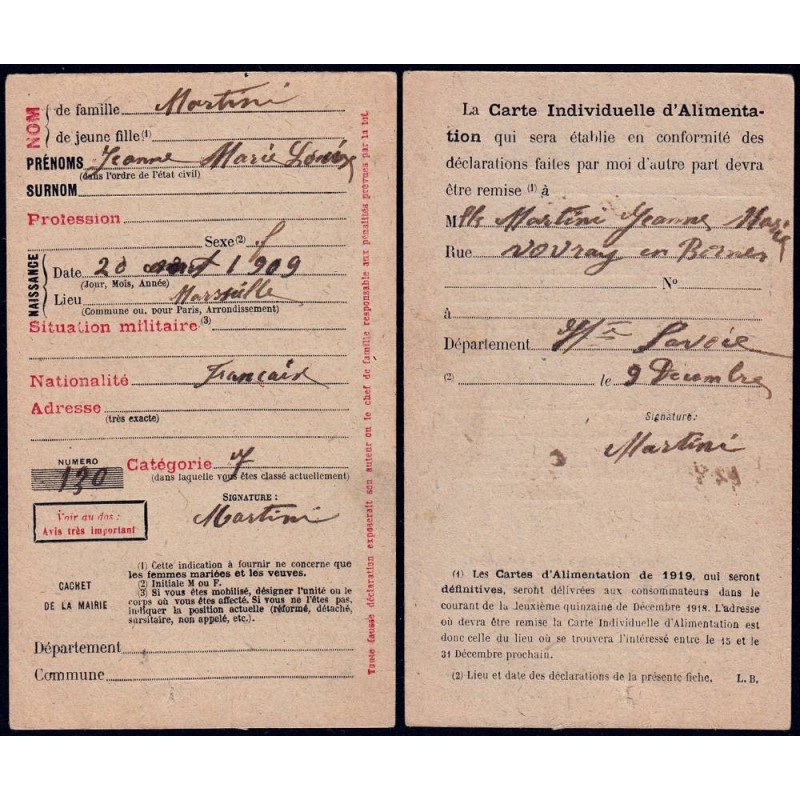 NOM
de famille Martini
de jeune fille (1)
PRÉNOMS Jeanne Marie Louise
(dans l'ordre de l'état civil)
SURNOM
Profession
Sexe (2) f
NAISSANCE
Date 20 août 1909
(Jour, Mois, Année)
Lieu Marseille
(Commune ou, pour Paris, Arrondissement)
Situation militaire (3)
Nationalité Française
Adresse
(très exacte)
NUMÉRO
130
Catégorie
(dans laquelle vous êtes classé actuellement)
SIGNATURE :
Martini
Voir au dos :
Avis très important
CACHET
DE LA MAIRIE
(1) Cette indication à fournir ne concerne que
les femmes mariées et les veuves.
(2) Initiale M ou F.
(3) Si vous êtes mobilisé, désigner l'unité ou le
corps où vous êtes affecté. Si vous ne l'êtes pas,
indiquer la position actuelle (réformé, détaché,
sursitaire, non appelé, etc.).
Département
Commune
Toute fausse déclaration exposerait son auteur ou le chef de famille responsable aux pénalités prévues par la loi.
La Carte Individuelle d'Alimenta-
tion qui sera établie en conformité des
déclarations faites par moi d'autre part devra
être remise (1) à
Mlle Martini Jeanne Marie
Rue Vovray en Bornes
No
à
Département Hte Savoie
(2) le 9 Decembre
Signature:
Martini
(1) Les Cartes d'Alimentation de 1919, qui seront
définitives, seront délivrées aux consommateurs dans le
courant de la Jeuxième quinzaine de Décembre 1918. L'adresse
où devra être remise la Carte Individuelle d'Alimentation est
donc celle du lieu où se trouvera l'intéressé entre le 15 et le
31 Décembre prochain.
(2) Lieu et date des déclarations de la présente fiche. L. B.